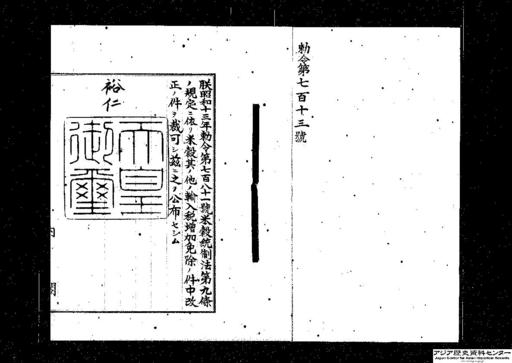 勅令第七百十三號
朕昭和十三年勅令第七百八十一號米穀統制法第九條
ノ規定ニ依リ米穀其ノ他ノ輸入税増加免除ノ件中改
正ノ件ヲ裁可シ茲ニ之ヲ公布セシム
裕仁
天皇
御璽
アジア歴史資料センター
Japan Center for Asian Historical Records